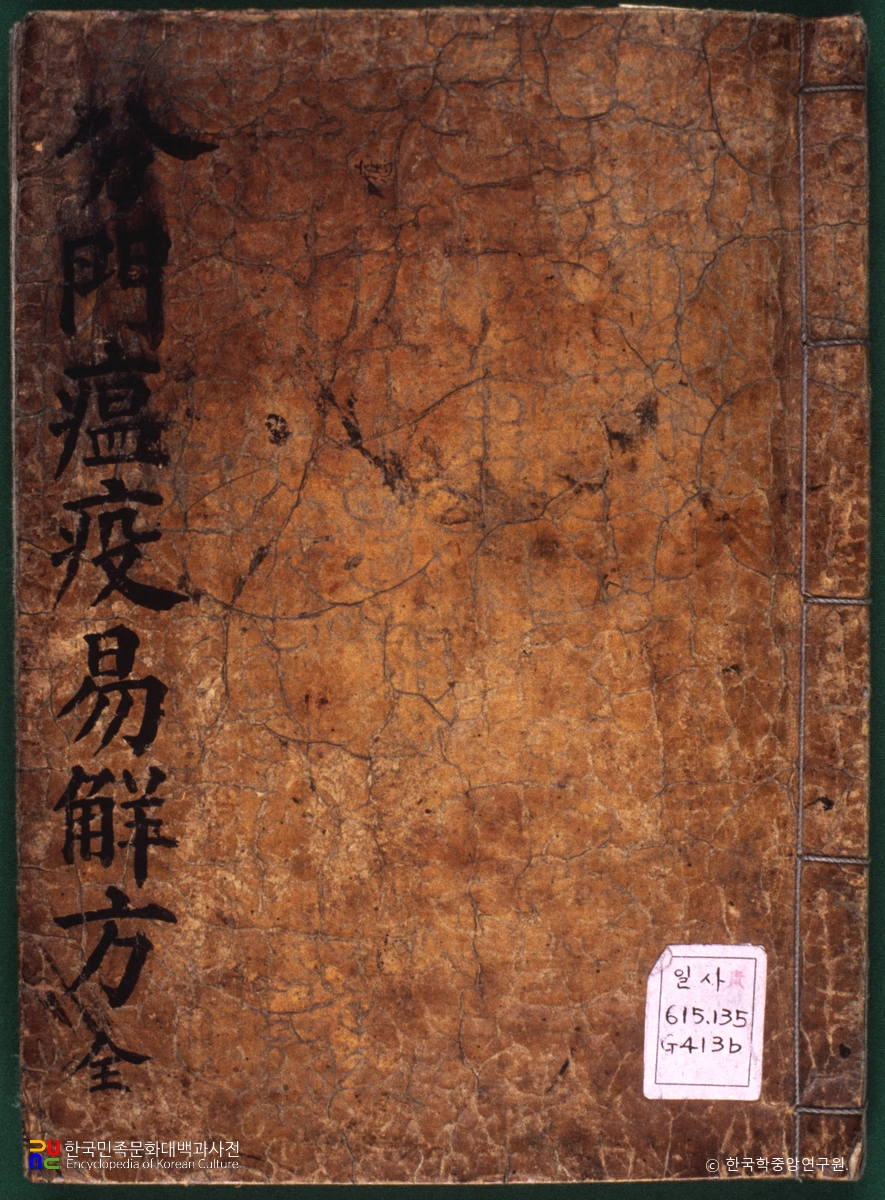 分門瘟疫易解方全
일사 貴
615.135
G413b
한국민족문화대백과사전
Encyclopedia of Korean Culture
© 한국학중앙연구원